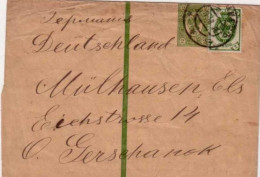 Германія
Deutschland
Mülhausen, Els
Eichstrosse 14
O. Gerschanok